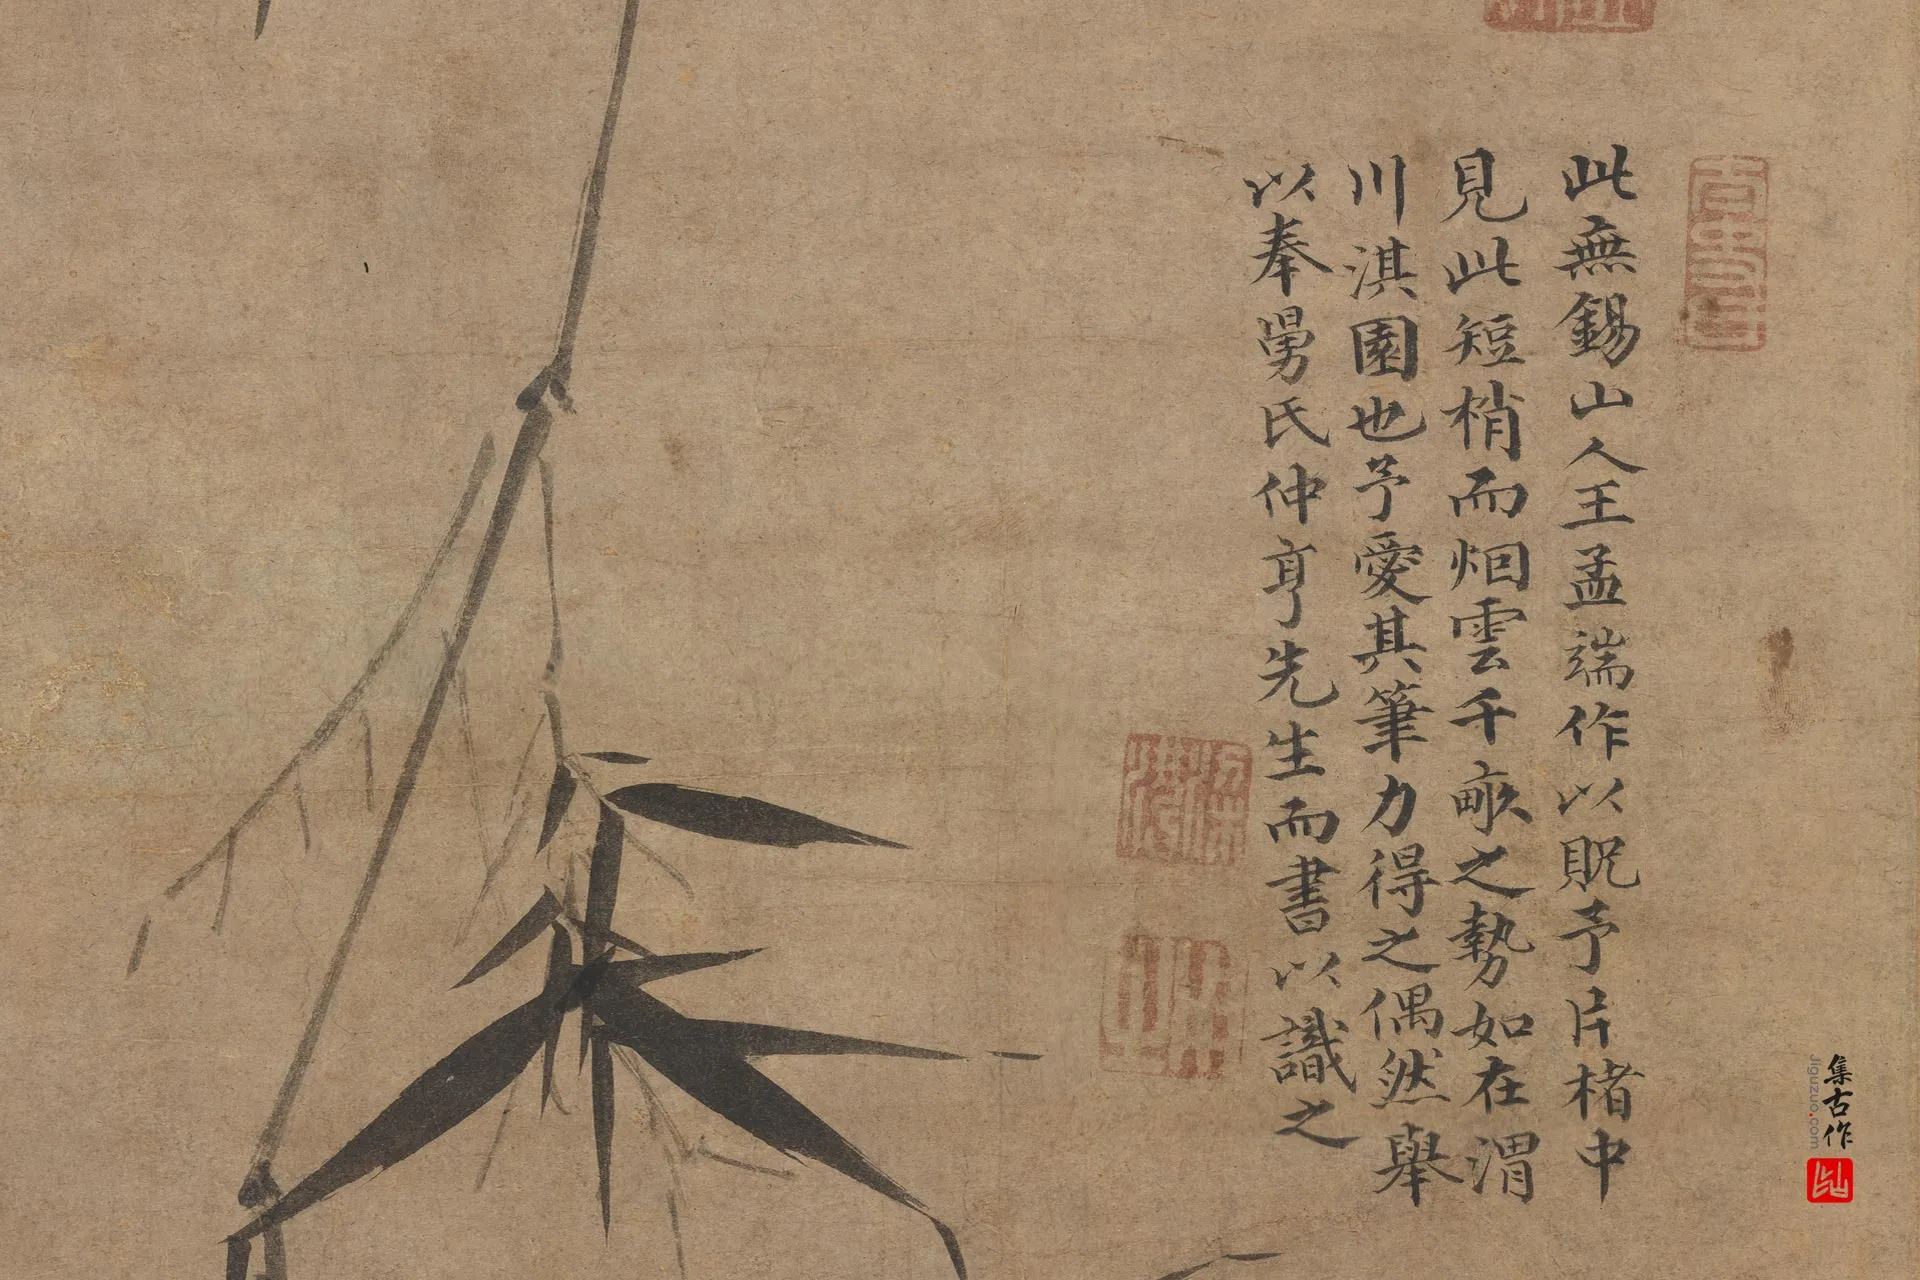 此無錫山人王孟端作以貺予片楮中
見此短梢而烟雲千畝之勢如在渭
川淇園也予愛其筆力得之偶然舉
以奉舅氏仲亨先生而書以識之
集古作
jiguzuo.com